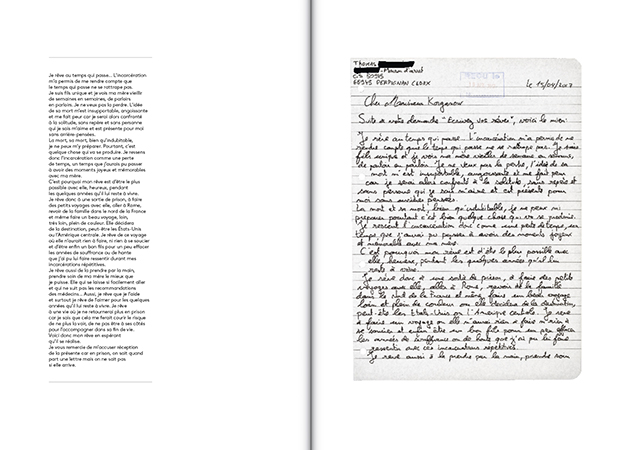 Je rêve au temps qui passe... L'incarcération
m'a permis de me rendre compte que
le temps qui passe ne se rattrape pas.
Je suis fils unique et je vois ma mère vieillir
de semaines en semaines, de parloirs
en parloirs. Je ne veux pas la perdre. L'idée
de sa mort m'est insupportable, angoissante
et me fait peur car je serai alors confronté
à la solitude, sans repère et sans personne
qui je sais m'aime et est présente pour moi
sans arrière-pensées.
La mort, sa mort, bien qu'inévitable,
je ne peux m'y préparer. Pourtant, c'est
quelque chose qui va se produire. Je ressens
donc l'incarcération comme une perte
de temps, un temps que j'aurais pu passer
à avoir des moments joyeux et mémorables
avec ma mère.
C'est pourquoi mon rêve est d'être le plus
possible avec elle, heureux, pendant
les quelques années qu'il lui reste à vivre.
Je rêve donc à une sortie de prison, à faire
des petits voyages avec elle, aller à Rome,
revoir de la famille dans le nord de la France
et même faire un beau voyage, loin,
très loin, plein de couleur. Elle décidera
de la destination, peut-être les États-Unis
ou l'Amérique centrale. Je rêve de ce voyage
où elle n'aurait rien à faire, ni rien à se soucier
et d'être enfin un bon fils pour un peu effacer
les années de souffrance ou de honte
que j'ai pu lui faire ressentir durant mes
incarcérations répétitives.
Je rêve aussi de la prendre par la main,
prendre soin de ma mère le mieux que
je puisse. Elle qui se laisse si facilement aller
et qui ne suit pas les recommandations
des médecins... Aussi, je rêve que je l'aide
et surtout je rêve de l'aimer pour les quelques
années qu'il lui reste à vivre. Je rêve
à une vie où je ne retournerai plus en prison
car je sais que cela me ferait courir le risque
de ne plus la voir, de ne pas être à ses côtés
pour l'accompagner dans sa fin de vie.
Voici donc mon rêve en espérant
qu'il se réalise.
Je vous remercie de m'accuser réception
de la présente car en prison, on sait quand
part une lettre mais on ne sait pas
si elle arrive.
Thomas
Maison d'arrêt
66945 PERPIGNAN CEDEX
Le 15/04/2017
Cher Monsieur
Suite à votre demande "Ecrivez vos rêves", voici le mien:
Je rêve au temps qui passe. L'incarcération m'a permis de me
rendre compte que le temps qui passe ne se rattrape pas. Je suis
fils unique et je vois ma mère vieillir de semaine en semaine,
de parloir en parloir. Je ne veux pas la perdre, l'idée de sa
mort m'est insupportable, angoissante et me fait peur
car je serai alors confronté à la solitude, sans repère et
sans personne qui je sais m'aime et est présente pour
moi sans arrière pensées.
La mort et sa mort, bien qu'inévitable, je ne peux m'y
préparer pourtant c'est bien quelque chose qui va se produire.
Je ressens l'incarcération donc comme une perte de temps, un
temps que j'aurais pu passer à avoir des moments joyeux
et mémorable avec ma mère.
C'est pourquoi mon rêve est d'être le plus possible avec
elle, heureux, pendant les quelques années qu'il lui
reste à vivre.
Je rêve donc à une sortie de prison, à faire des petits
voyages avec elle, aller à Rome, revoir de la famille
dans le nord de la France et même faire un beau voyage
loin et plein de couleur où elle décidera de la destination,
peut-être les Etats-Unis ou l'Amérique centrale. Je rêve
à faire un voyage où elle n'aurai rien à faire ni rien à
se soucier et enfin être un bon fils pour un peu effacer
les années de souffrance ou de honte que j'ai pu lui faire
ressentir avec ces incarcérations répétitives.
Je rêve aussi à la prendre par la main, prendre soin